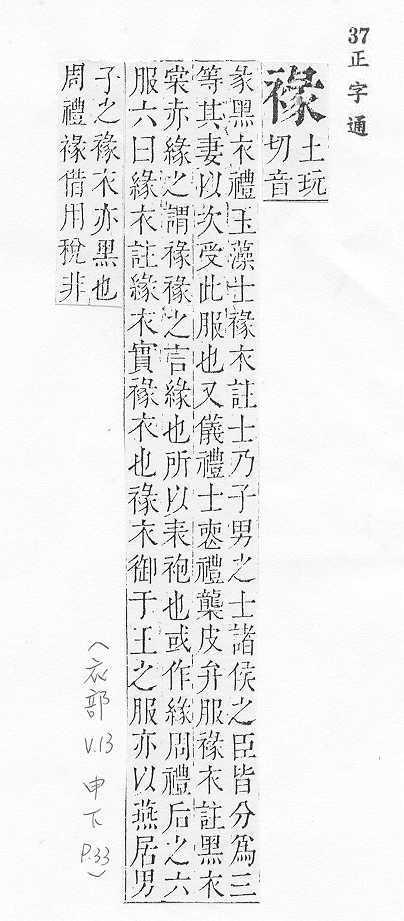 37正字通
褖
土玩
切音
彖黑衣禮玉藻士褖衣註士乃子男之士諸侯之臣皆分爲三
等其妻以次受此服也又儀禮士喪禮襲皮弁服褖衣註黑衣
裳赤緣之謂褖褖之言緣也所以表袍也或作緣周禮后之六
服六曰緣衣註緣衣實褖衣也褖衣御于王之服亦以燕居男
子之褖衣亦黑也
周禮褖借用稅非
(衣部 V.13 申下 P.33)